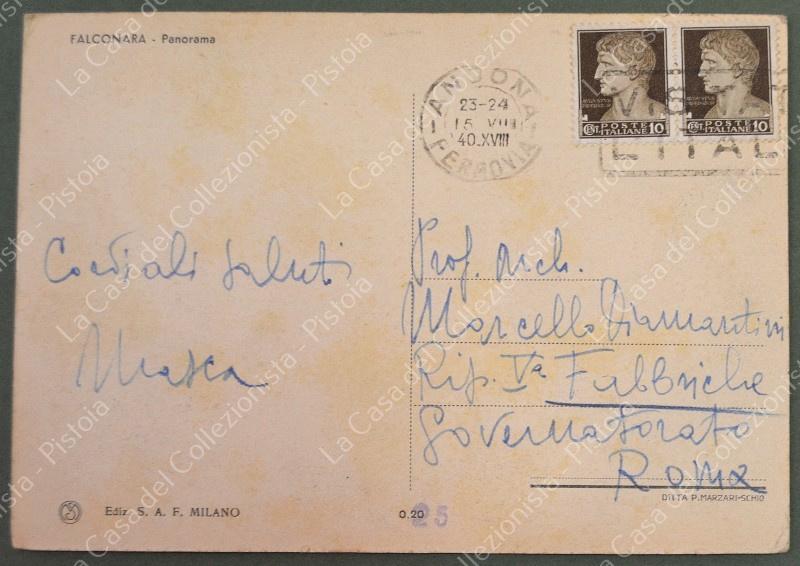 FALCONARA - Panorama
ANCONA
23-24
15 VIII
40.XVIII
FERROVIA
CENT. POSTE ITALIANE 10
CENT. POSTE ITALIANE 10
VISITATE
L'ITAL
Cordiali saluti
Prof. Arch.
Marcello Diamantini
Rip. Va Fabbriche
Governatorato
Roma
DITTA P. MARZARI-SCHIO
Ediz. S. A. F. MILANO
0.20
25
La Casa del Collezionista - Pistoia